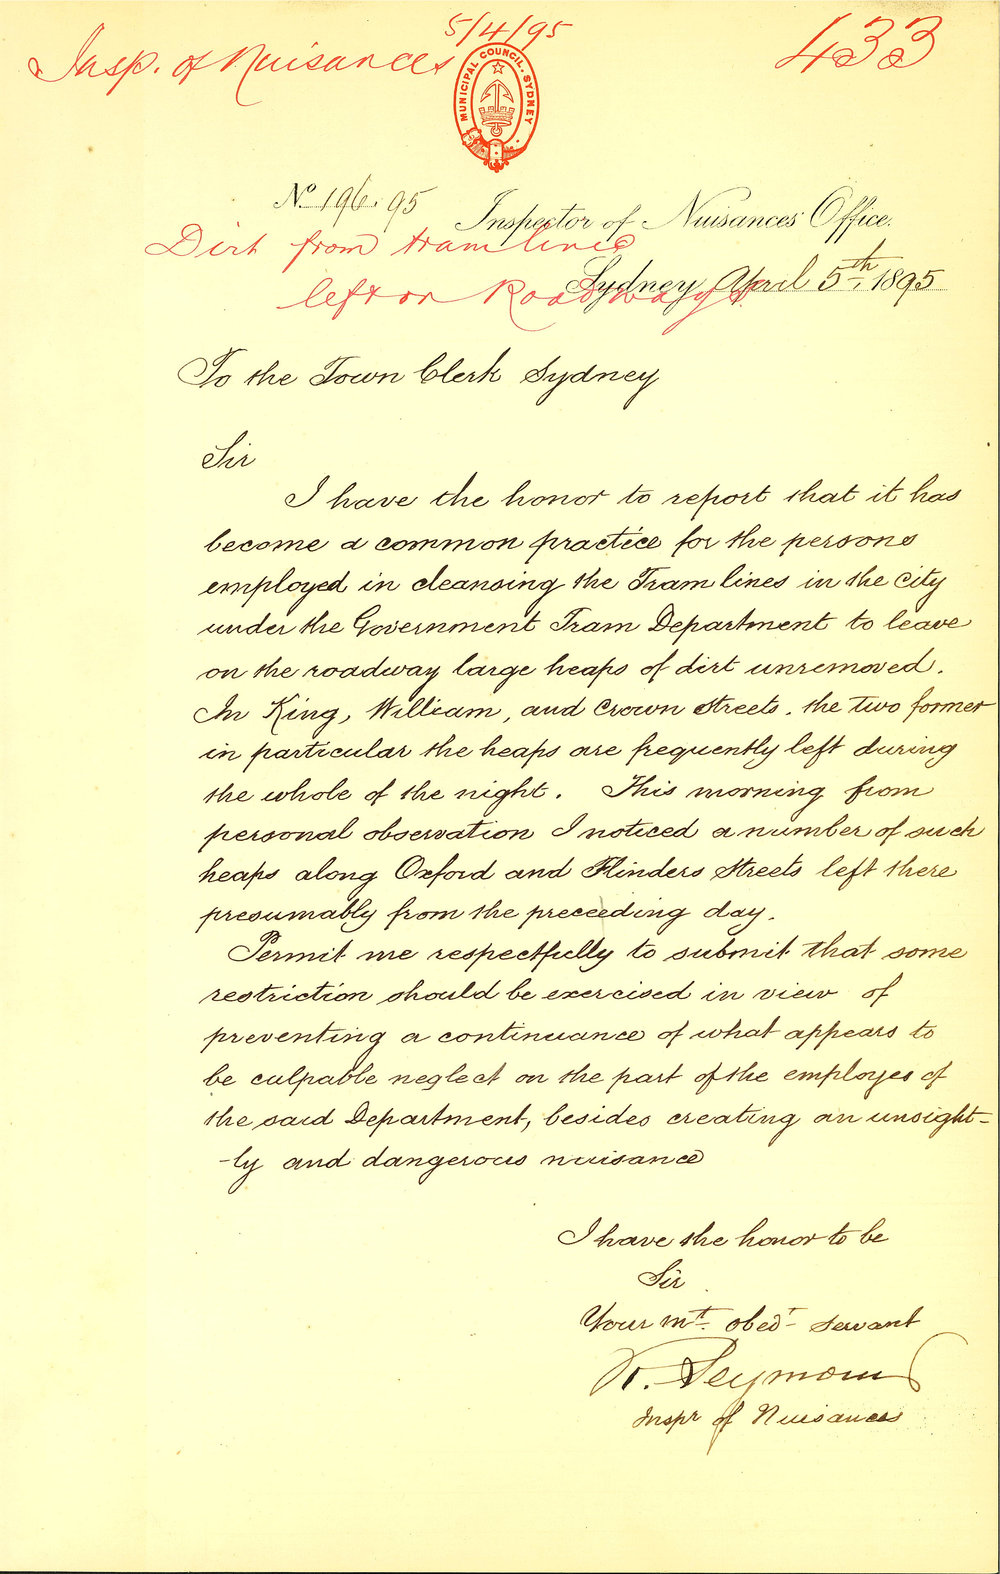 5/4/95
Insp. of Nuisances
433
MUNICIPAL COUNCIL. SYDNEY
No. 196. 95
Inspector of Nuisances' Office.
Dirt from tram lines
Sydney, April 5th. 1895
left on Roadways
To the Town Clerk Sydney
Sir
I have the honor to report that it has
become a common practice for the persons
employed in cleansing the Tram lines in the City
under the Government Tram Department to leave
on the roadway large heaps of dirt unremoved.
In King, William, and Crown Streets. the two former
in particular the heaps are frequently left during
the whole of the night. This morning from
personal observation I noticed a number of such
heaps along Oxford and Flinders Streets left there
presumably from the preceeding day.
Permit me respectfully to submit that some
restriction should be exercised in view of
preventing a continuance of what appears to
be culpable neglect on the part of the employes of
the said Department, besides creating an unsight-
-ly and dangerous nuisance
I have the honor to be
Sir
Your mt. obedt servant
Seymour
Inspr of Nuisances